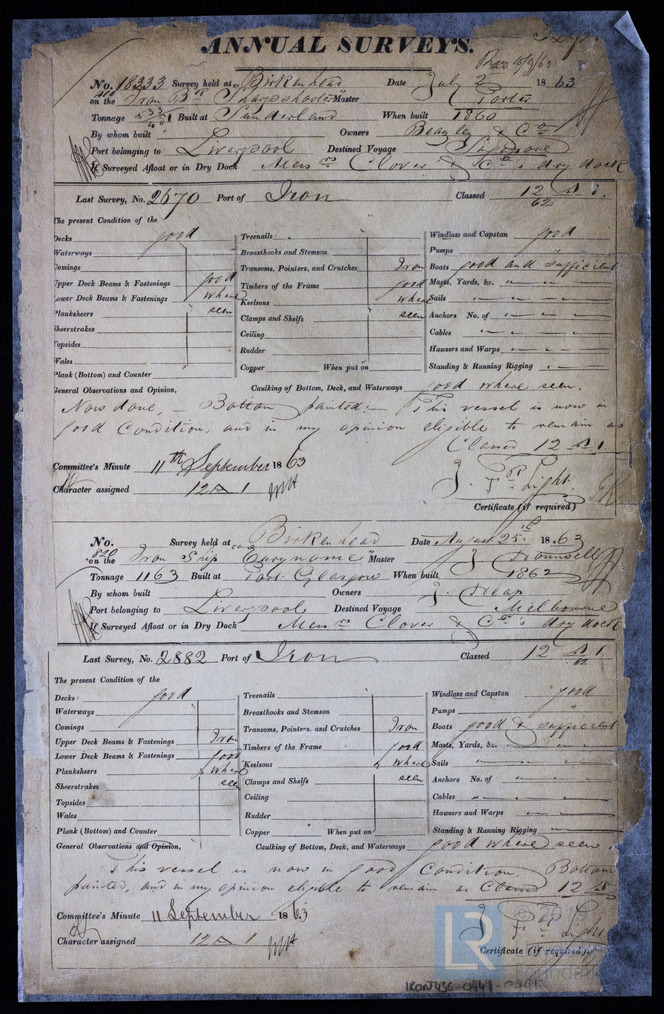 ANNUAL SURVEYS.
No. 18333 Survey held at Birkenhead Date July 2 1863
on the Iron Bk Sharpshooter Master Porter
Tonnage Built at Sunderland When built 1860
By whom built Owners Beazley & Co
Port belonging to Liverpool Destined Voyage Singapore
If Surveyed Afloat or in Dry Dock Messrs Clover & Co's dry dock
Last Survey, No. 2670 Port of Iron Classed 12 A 1.
62
The present Condition of the
Decks good Treenails Windlass and Capstan good
Waterways Breasthooks and Stemson Pumps "
Comings Transoms, Pointers, and Crutches Iron Boats good and sufficient
Upper Deck Beams & Fastenings good Timbers of the Frame good Masts, Yards, &c. " "
Lower Deck Beams & Fastenings where Keelsons where Sails " "
Planksheers seen Clamps and Shelfs seen Anchors No. of " "
Sheerstrakes Ceiling Cables " "
Topsides Rudder Hawsers and Warps " "
Wales Copper When put on Standing & Running Rigging " "
Plank (Bottom) and Counter
General Observations and Opinion, Caulking of Bottom, Deck, and Waterways good where seen.
Now done, - Bottom painted - This vessel is now in
good Condition, and in my opinion eligible to remain as
Classed 12 A 1
Committee's Minute 11th September 1863
Character assigned 12 A 1
J. Fr. Light
Certificate (if required)
No. 820 Survey held at Birkenhead Date August 25th 1863
on the Iron Ship "Eurynome" Master J Hounsell
Tonnage 1163 Built at Port Glasgow When built 1862
By whom built Owners J. Heap
Port belonging to Liverpool Destined Voyage Melbourne
If Surveyed Afloat or in Dry Dock Messrs Clover & Co's dry dock
Last Survey, No. 2882 Port of Iron Classed 12 A 1.
62
The present Condition of the
Decks good Treenails Windlass and Capstan good
Waterways Breasthooks and Stemson Pumps "
Comings Transoms, Pointers, and Crutches Iron Boats good & sufficient
Upper Deck Beams & Fastenings Iron Timbers of the Frame good Masts, Yards, &c. " "
Lower Deck Beams & Fastenings good Keelsons where Sails " "
Planksheers where Clamps and Shelfs seen Anchors No. of " "
Sheerstrakes seen Ceiling Cables " "
Topsides Rudder Hawsers and Warps " "
Wales Copper When put on Standing & Running Rigging "
Plank (Bottom) and Counter
General Observations and Opinion, Caulking of Bottom, Deck, and Waterways good where seen
This vessel is now in good Condition Bottom
painted, and in my opinion eligible to remain as Classed 12 A
Committee's Minute 11 September 1863
Character assigned 12 A 1
J. Fr. Light
Certificate (if required)
LR
IRON436-0441